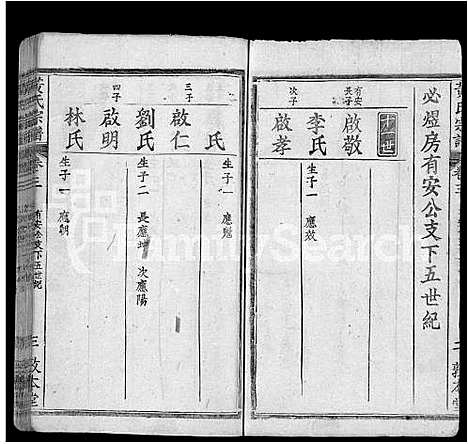 必煌房有安公支下五世紀
十一世
有安長子
啟敬
李氏
生子一 應效
次子
啟孝
氏
生子一 應魁
三子
啟仁
劉氏
生子二 長應坤 次應陽
四子
啟明
林氏
生子一 應朝
黃氏宗譜
卷三
有安公支下五世紀
三 敦本堂